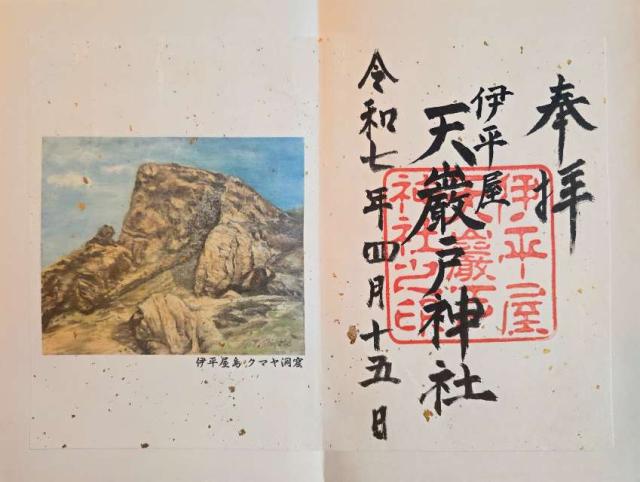 奉拝
伊平屋
天巖戸神社
令和七年四月十五日
伊平屋
天巖戸
神社之印
伊平屋島クマヤ洞窟